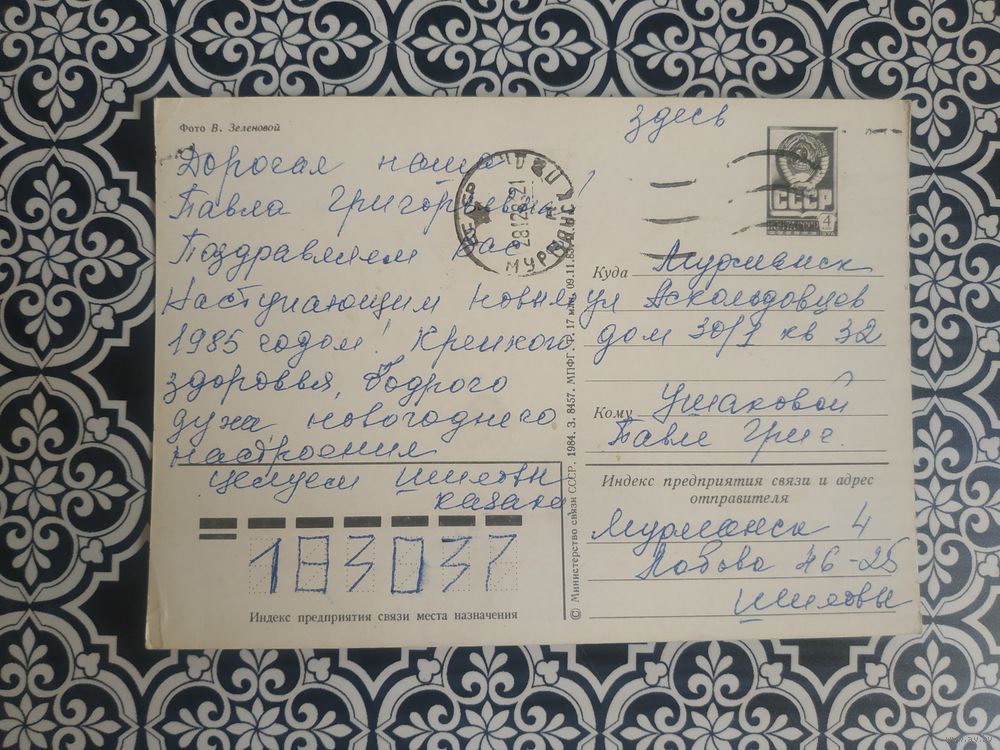 Фото В. Зеленовой
здесь
Дорогая наша
Павла Григорьевна!
Поздравляем Вас
Наступающим Новым
1985 годом! Крепкого
здоровья, бодрого
духа новогоднего
настроения
целуем Шиловы
СССР
4
28128421
Куда Мурманск
ул Аскольдовцев
дом 30/1 кв 32
Кому Ушаковой
Павле Григ.
Индекс предприятия связи и адрес
отправителя
Мурманск 4
46-25
Шиловы
183037
Индекс предприятия связи места назначения
© Министерство связи СССР, 1984. З. 8457. МПФГ